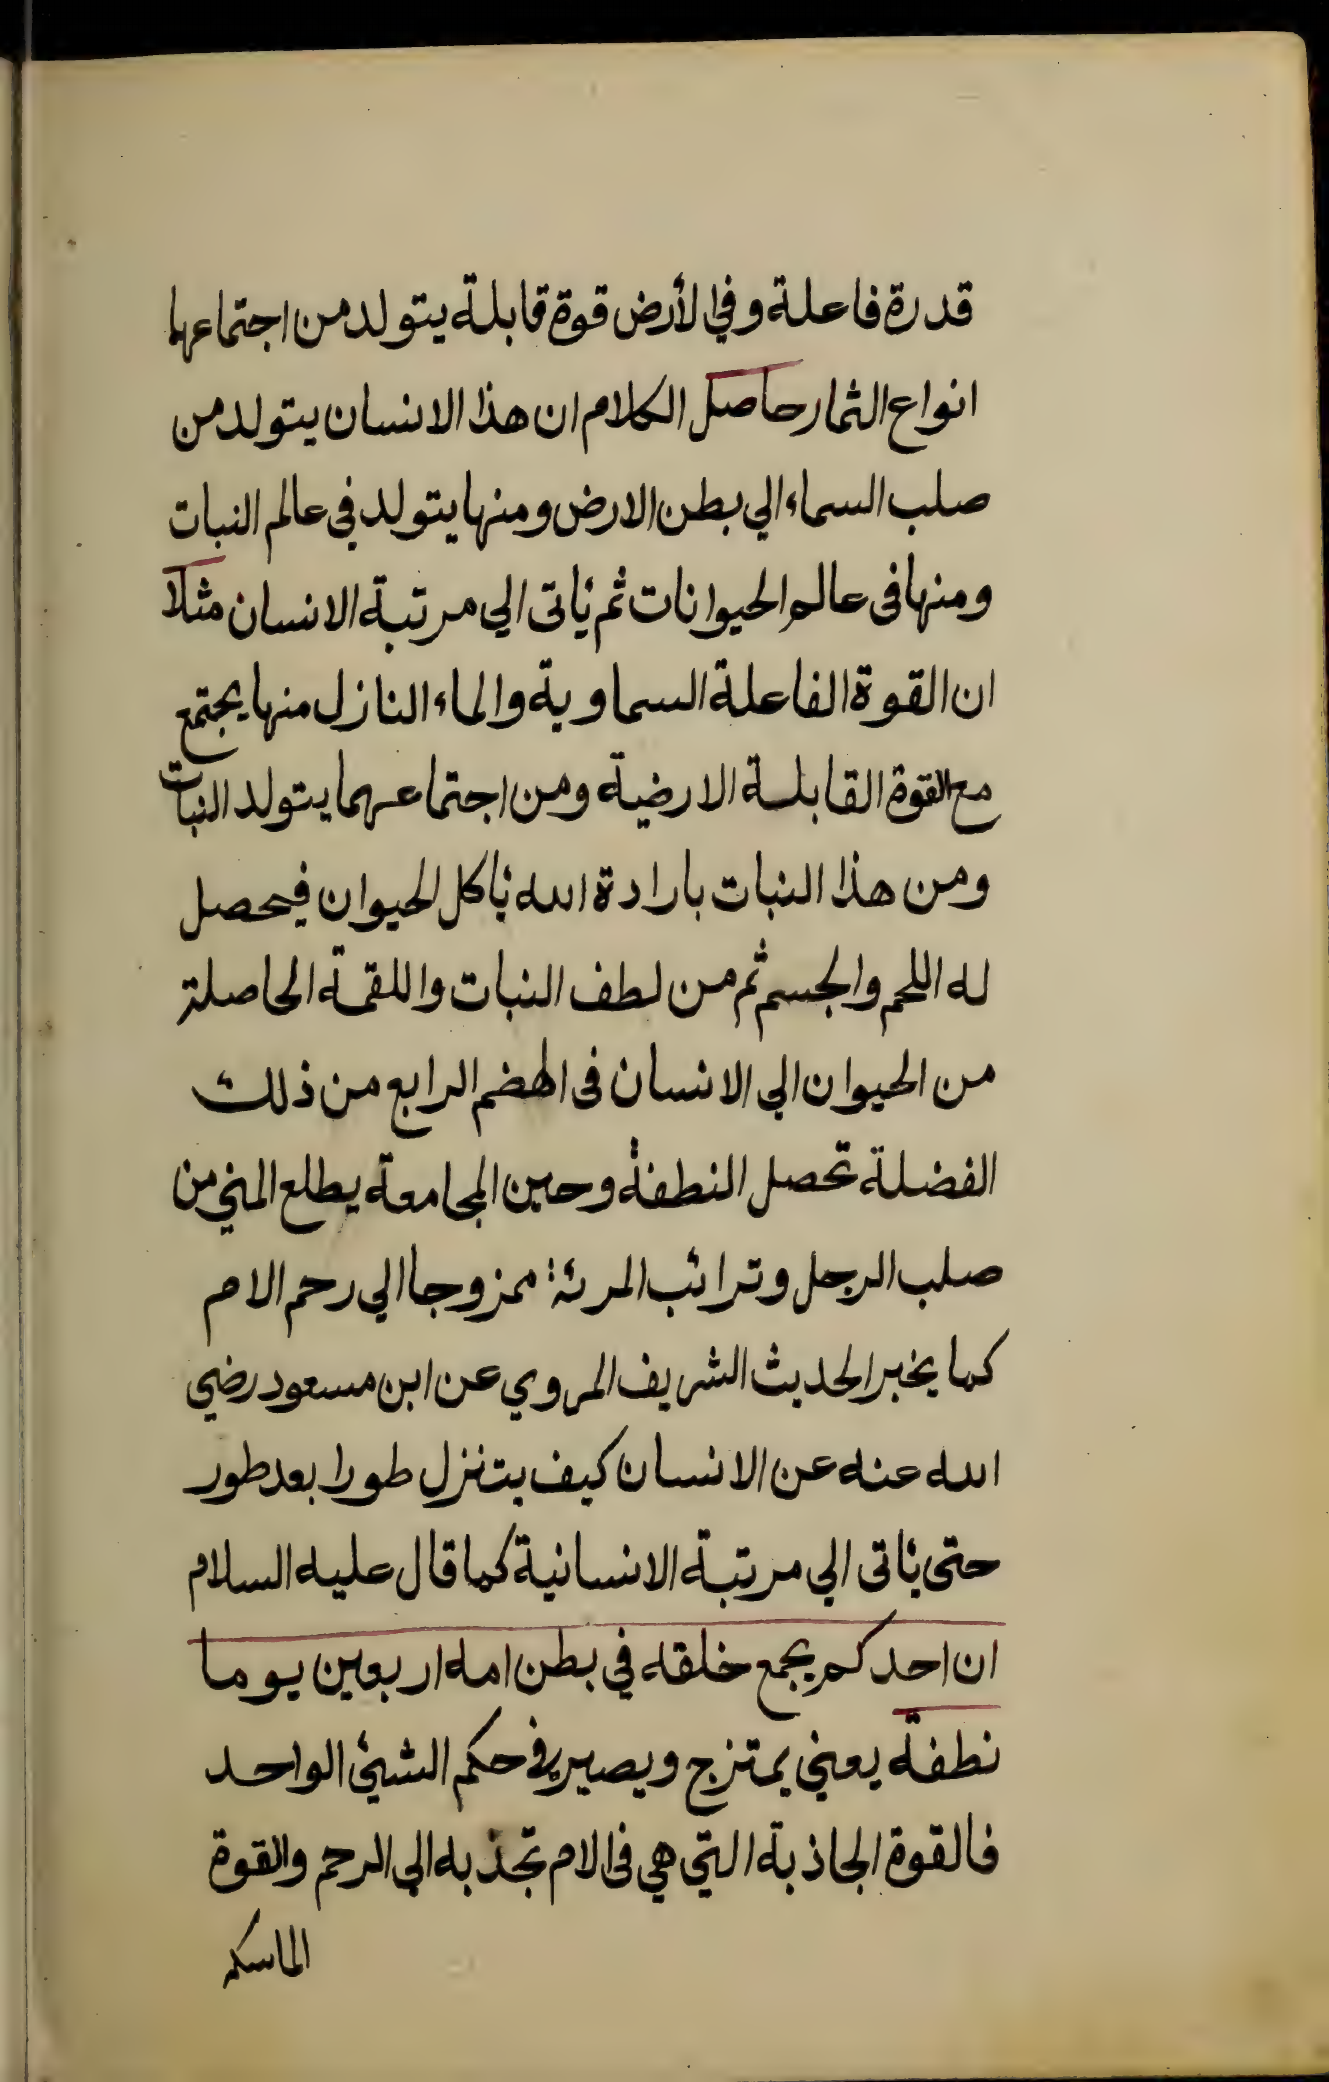 قدرة فاعلة وفي الأرض قوة قابلة يتولد من اجتماعهما
انواع الثمار حاصل الكلام ان هذا الانسان يتولد من
صلب السماء الي بطن الارض ومنها يتولد في عالم النبات
ومنها فى عالم الحيوانات ثم ياتى الي مرتبة الانسان مثلا
ان القوة الفاعلة السماوية والماء النازل منها يجتمع
مع القوة القابلة الارضية ومن اجتماعهما يتولد النبات
ومن هذا النبات بارادة الله ياكل الحيوان فيحصل
له اللحم والجسم ثم من لطف النبات واللقمة الحاصلة
من الحيوان الي الانسان فى الهضم الرابع من ذلك
الفضلة تحصل النطفة وحين المجامعة يطلع المني من
صلب الرجل وترائب المرئة ممزوجا الي رحم الام
كما يخبر الحديث الشريف المروي عن ابن مسعود رضي
الله عنه عن الانسان كيف يتنزل طورا بعد طور
حتى ياتى الي مرتبة الانسانية كما قال عليه السلام
ان احدكم يجمع خلقه في بطن امه اربعين يوما
نطفة يعني يمتزج ويصير في حكم الشيئ الواحد
فالقوة الجاذبة التي هي فى الام تجذبه الي الرحم والقوة
الماسكه